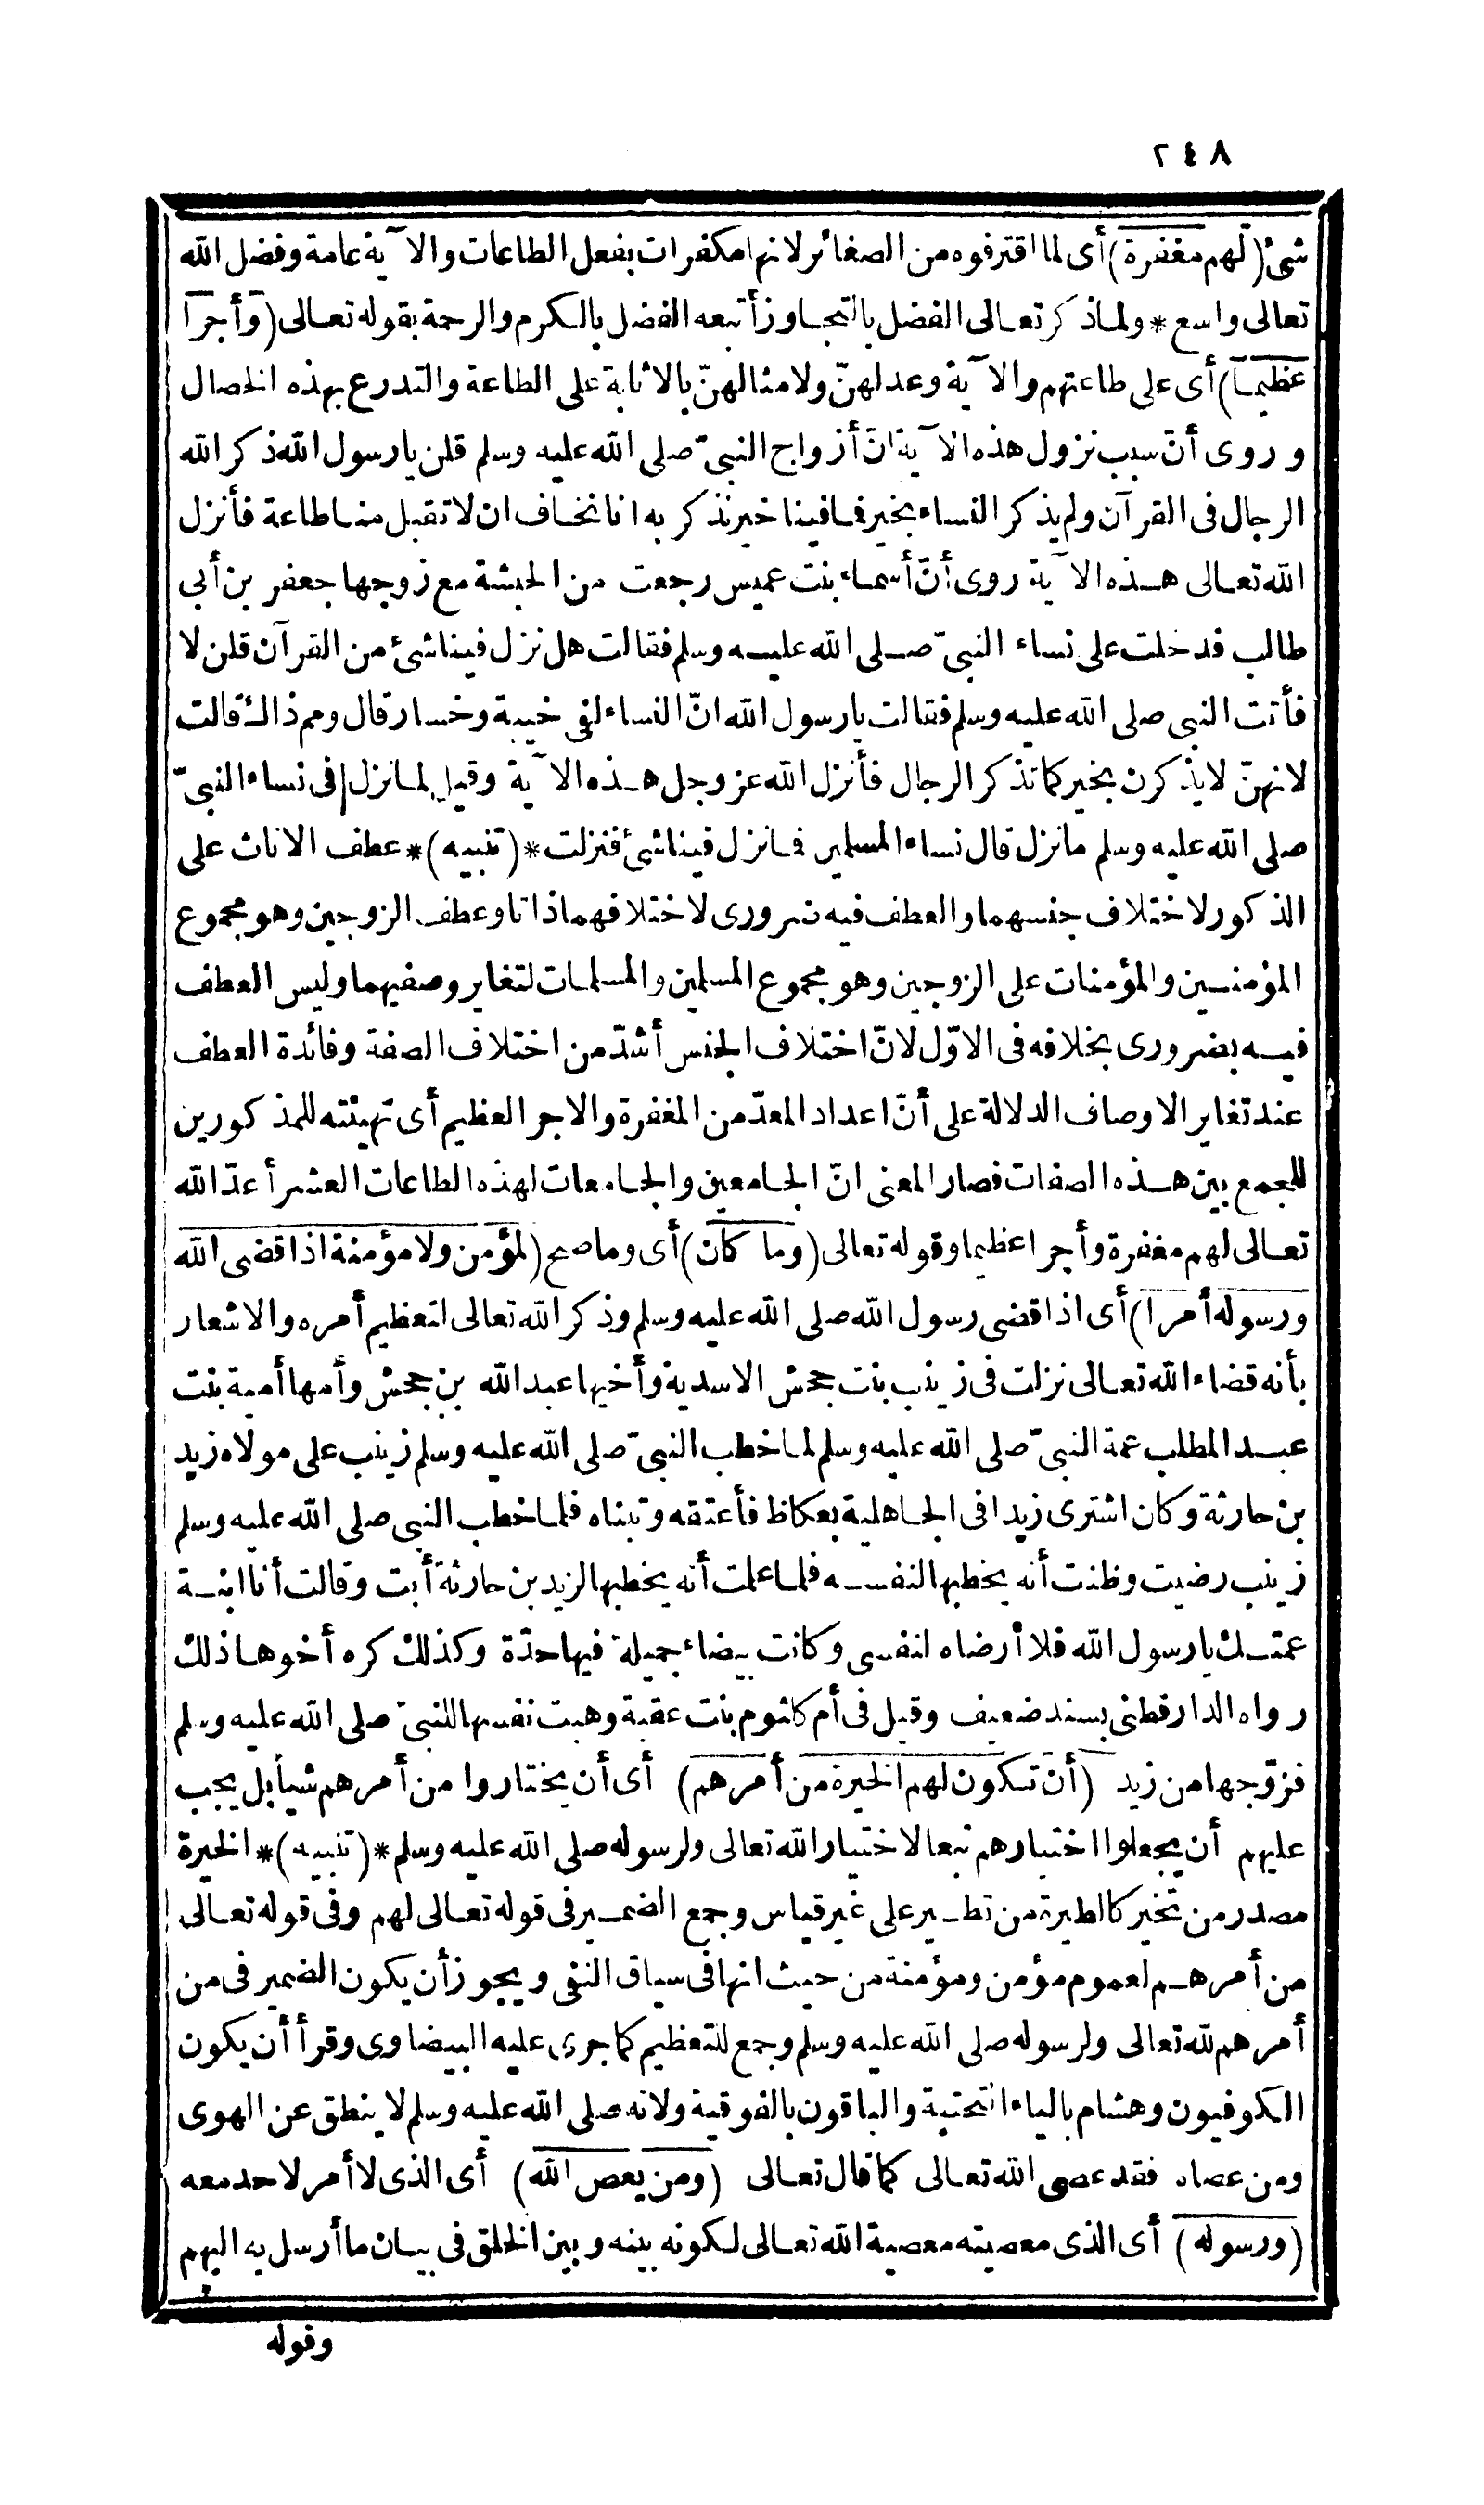 ٢٤٨
شئ (لهم مغفرة) أى لما اقترفوه من الصغائر لانها مكفرات بفعل الطاعات والآية عامة وفضل الله
تعالى واسع * ولما ذكر تعالى الفضل بالتجاوز أتبعه الفضل بالكرم والرحمة بقوله تعالى (وأجرا
عظيما) أى على طاعتهم والآية وعد لهنّ ولامثالهنّ بالاثابة على الطاعة والتدرع بهذه الخصال
وروى أنّ سبب نزول هذه الآية انّ أزواج النبىّ صلى الله عليه وسلم قلن يا رسول الله ذكر الله
الرجال فى القرآن ولم يذكر النساء بخير فما فينا خير نذكر به انا نخاف ان لا تقبل منا طاعة فأنزل
الله تعالى هذه الآية روى أنّ أسماء بنت عميس رجعت من الحبشة مع زوجها جعفر بن أبي
طالب فدخلت على نساء النبىّ صلى الله عليه وسلم فقالت هل نزل فينا شئ من القرآن قلن لا
فأتت النبى صلى الله عليه وسلم فقالت يا رسول الله انّ النساء لفى خيبة وخسار قال ومم ذاك قالت
لانهنّ لا يذكرن بخير كما تذكر الرجال فأنزل الله عز وجل هذه الآية وقيل لما نزل فى نساء النبىّ
صلى الله عليه وسلم ما نزل قال نساء المسلمين فما نزل فينا شئ فنزلت * (تنبيه) * عطف الاناث على
الذكور لاختلاف جنسهما والعطف فيه ضرورى لاختلافهما ذاتا وعطف الزوجين وهو مجموع
المؤمنين والمؤمنات على الزوجين وهو مجموع المسلمين والمسلمات لتغاير وصفيهما وليس العطف
فيه بضرورى بخلافه فى الاوّل لانّ اختلاف الجنس أشدّ من اختلاف الصفة وفائدة العطف
عند تغاير الاوصاف الدلالة على أنّ اعداد المعدّ من المغفرة والاجر العظيم أى تهيئته للمذكورين
للجمع بين هذه الصفات فصار المعنى انّ الجامعين والجامعات لهذه الطاعات العشر أعدّ الله
تعالى لهم مغفرة وأجرا عظيما وقوله تعالى (وما كان) أى وما صح (لمؤمن ولا مؤمنة اذا قضى الله
ورسوله أمرا) أى اذا قضى رسول الله صلى الله عليه وسلم وذكر الله تعالى لتعظيم أمره والاشعار
بأنه قضاء الله تعالى نزلت فى زينب بنت جحش الاسدية وأخيها عبد الله بن جحش وأمها أمية بنت
عبد المطلب عمة النبىّ صلى الله عليه وسلم لما خطب النبىّ صلى الله عليه وسلم زينب على مولاه زيد
بن حارثة وكان اشترى زيدا فى الجاهلية بعكاظ فأعتقه وتبناه فلما خطب النبى صلى الله عليه وسلم
زينب رضيت وظنت أنه يخطبها لنفسه فلما علمت أنه يخطبها لزيد بن حارثة أبت وقالت أنا ابنة
عمتك يا رسول الله فلا أرضاه لنفسى وكانت بيضاء جميلة فيها حدّة وكذلك كره أخوها ذلك
رواه الدارقطنى بسند ضعيف وقيل فى أم كلثوم بنت عقبة وهبت نفسها للنبىّ صلى الله عليه وسلم
فزوّجها من زيد (أن تكون لهم الخيرة من أمرهم) أى أن يختاروا من أمرهم شيأ بل يجب
عليهم أن يجعلوا اختيارهم تبعا لاختيار الله تعالى ولرسوله صلى الله عليه وسلم * (تنبيه) * الخيرة
مصدر من تخير كالطيرة من تطير على غير قياس وجمع الضمير فى قوله تعالى لهم وفى قوله تعالى
من أمرهم لعموم مؤمن ومؤمنة من حيث انها فى سياق النفى ويجوز أن يكون الضمير فى من
أمرهم لله تعالى ولرسوله صلى الله عليه وسلم وجمع للتعظيم كما جرى عليه البيضاوى وقرأ أن يكون
الكوفيون وهشام بالياء التحتية والباقون بالفوقية ولانه صلى الله عليه وسلم لا ينطق عن الهوى
ومن عصاه فقد عصى الله تعالى كما قال تعالى (ومن يعص الله) أى الذى لا أمر لاحد معه
(ورسوله) أى الذى معصيته معصية الله تعالى لكونه بينه وبين الخلق فى بيان ما أرسل به اليهم
وقوله